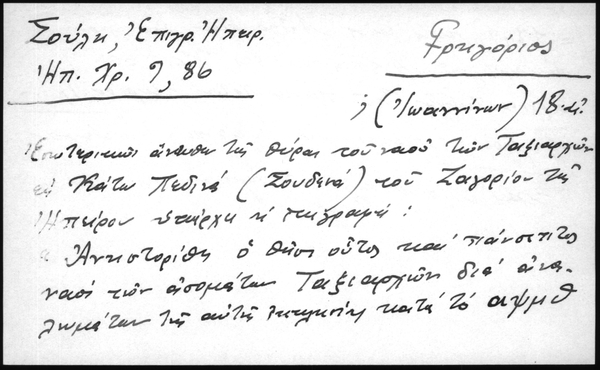 Σούλη, Ἐπιγρ. Ἠπειρ.
Γρηγόριος
Ἠπ. Χρ. 9, 86
(Ἰωαννίνων) 18.
Ἐσωτερικῶς ἄνωθεν τῆς θύρας τοῦ ναοῦ τῶν Ταξιαρχῶν
Κάτω Πεδινά (Σουδενά) τοῦ Ζαγορίου τῆς
Ἠπείρου ὑπάρχει ἡ ἐπιγραφή:
Ἀνιστορίθη ὁ θεῖος οὗτος καί πάνσεπτος
ναός τῶν ἀσομάτων Ταξιαρχῶν διά ἀνα-
λωμάτων τῆς αὐτῆς κατά τό αψμθ